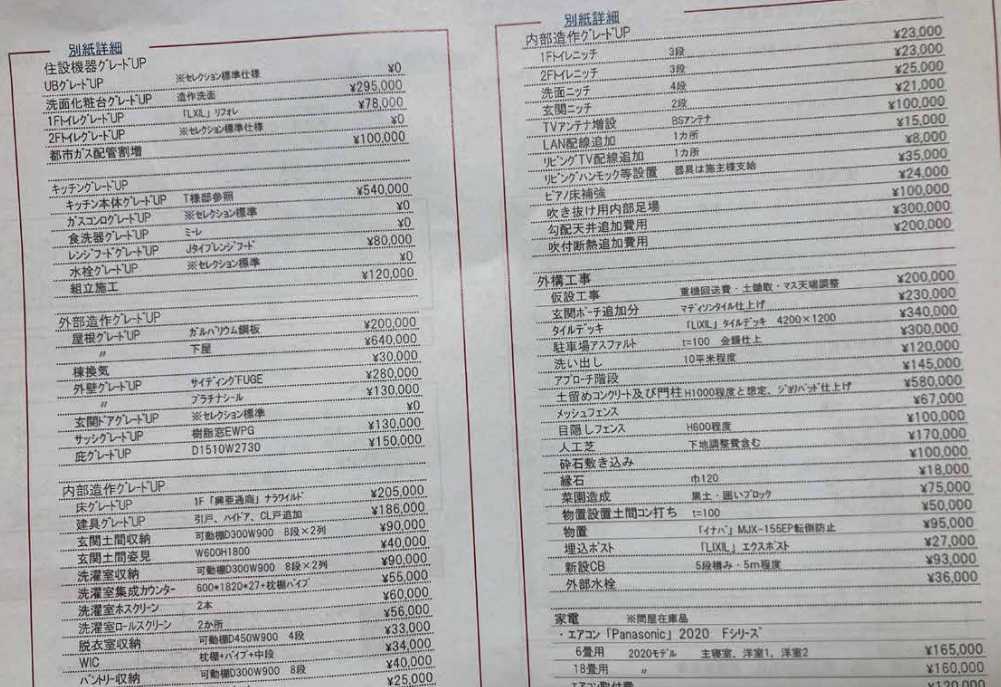 別紙詳細
住設機器グレードUP
UBグレードUP ※セレクション標準仕様 ¥0
洗面化粧台グレードUP 造作洗面 ¥295,000
1FトイレグレードUP 「LIXIL」リフォレ ¥78,000
2FトイレグレードUP ※セレクション標準仕様 ¥0
都市ガス配管割増 ¥100,000
キッチングレードUP
キッチン本体グレードUP T様邸参照 ¥540,000
ガスコンログレードUP ※セレクション標準 ¥0
食洗器グレードUP ミーレ ¥0
レンジフードグレードUP Jタイプレンジフード ¥80,000
水栓グレードUP ※セレクション標準 ¥0
組立施工 ¥120,000
外部造作グレードUP
屋根グレードUP ガルバリウム鋼板 ¥200,000
〃 下屋 ¥640,000
棟換気 ¥30,000
外壁グレードUP サイディングFUGE ¥280,000
〃 プラチナシール ¥130,000
玄関ドアグレードUP ※セレクション標準 ¥0
サッシグレードUP 樹脂窓EWPG ¥130,000
庇グレードUP D1510W2730 ¥150,000
内部造作グレードUP
床グレードUP 1F「興亜通商」ナラワイルド ¥205,000
建具グレードUP 引戸、ハイドア、CL戸追加 ¥186,000
玄関土間収納 可動棚D300W900 8段×2列 ¥90,000
玄関土間姿見 W600H1800 ¥40,000
洗濯室収納 可動棚D300W900 8段×2列 ¥90,000
洗濯室集成カウンター 600*1820*27+枕棚パイプ ¥55,000
洗濯室ホスクリーン 2本 ¥60,000
洗濯室ロールスクリーン 2か所 ¥56,000
脱衣室収納 可動棚D450W900 4段 ¥33,000
WIC 枕棚+パイプ+中段 ¥34,000
パントリー収納 可動棚D300W900 8段 ¥40,000
¥25,000
別紙詳細
内部造作グレードUP
1Fトイレニッチ 3段 ¥23,000
2Fトイレニッチ 3段 ¥23,000
洗面ニッチ 4段 ¥25,000
玄関ニッチ 2段 ¥21,000
TVアンテナ増設 BSアンテナ ¥100,000
LAN配線追加 1カ所 ¥15,000
リビングTV配線追加 1カ所 ¥8,000
リビングハンモック等設置 器具は施主様支給 ¥35,000
ピアノ床補強 ¥24,000
吹き抜け用内部足場 ¥100,000
勾配天井追加費用 ¥300,000
吹付断熱追加費用 ¥200,000
外構工事
仮設工事 重機回送費・土鋤取・マス天端調整 ¥200,000
玄関ポーチ追加分 マディソンタイル仕上げ ¥230,000
タイルデッキ 「LIXIL」タイルデッキ 4200×1200 ¥340,000
駐車場アスファルト t=100 金鏝仕上 ¥300,000
洗い出し 10平米程度 ¥120,000
アプローチ階段 ¥145,000
土留めコンクリート及び門柱 H1000程度と想定、ジョリパット仕上げ ¥580,000
メッシュフェンス ¥67,000
目隠しフェンス H600程度 ¥100,000
人工芝 下地調整費含む ¥170,000
砕石敷き込み ¥100,000
縁石 巾120 ¥18,000
菜園造成 黒土・囲いブロック ¥75,000
物置設置土間コン打ち t=100 ¥50,000
物置 「イナバ」MJX-155EP転倒防止 ¥95,000
埋込ポスト 「LIXIL」エクスポスト ¥27,000
新設CB 5段積み・5m程度 ¥93,000
外部水栓 ¥36,000
家電 ※問屋在庫品
・エアコン「Panasonic」2020 Fシリーズ
6畳用 2020モデル 主寝室、洋室1、洋室2 ¥165,000
18畳用 〃 ¥160,000
エアコン取付費 ¥120,000